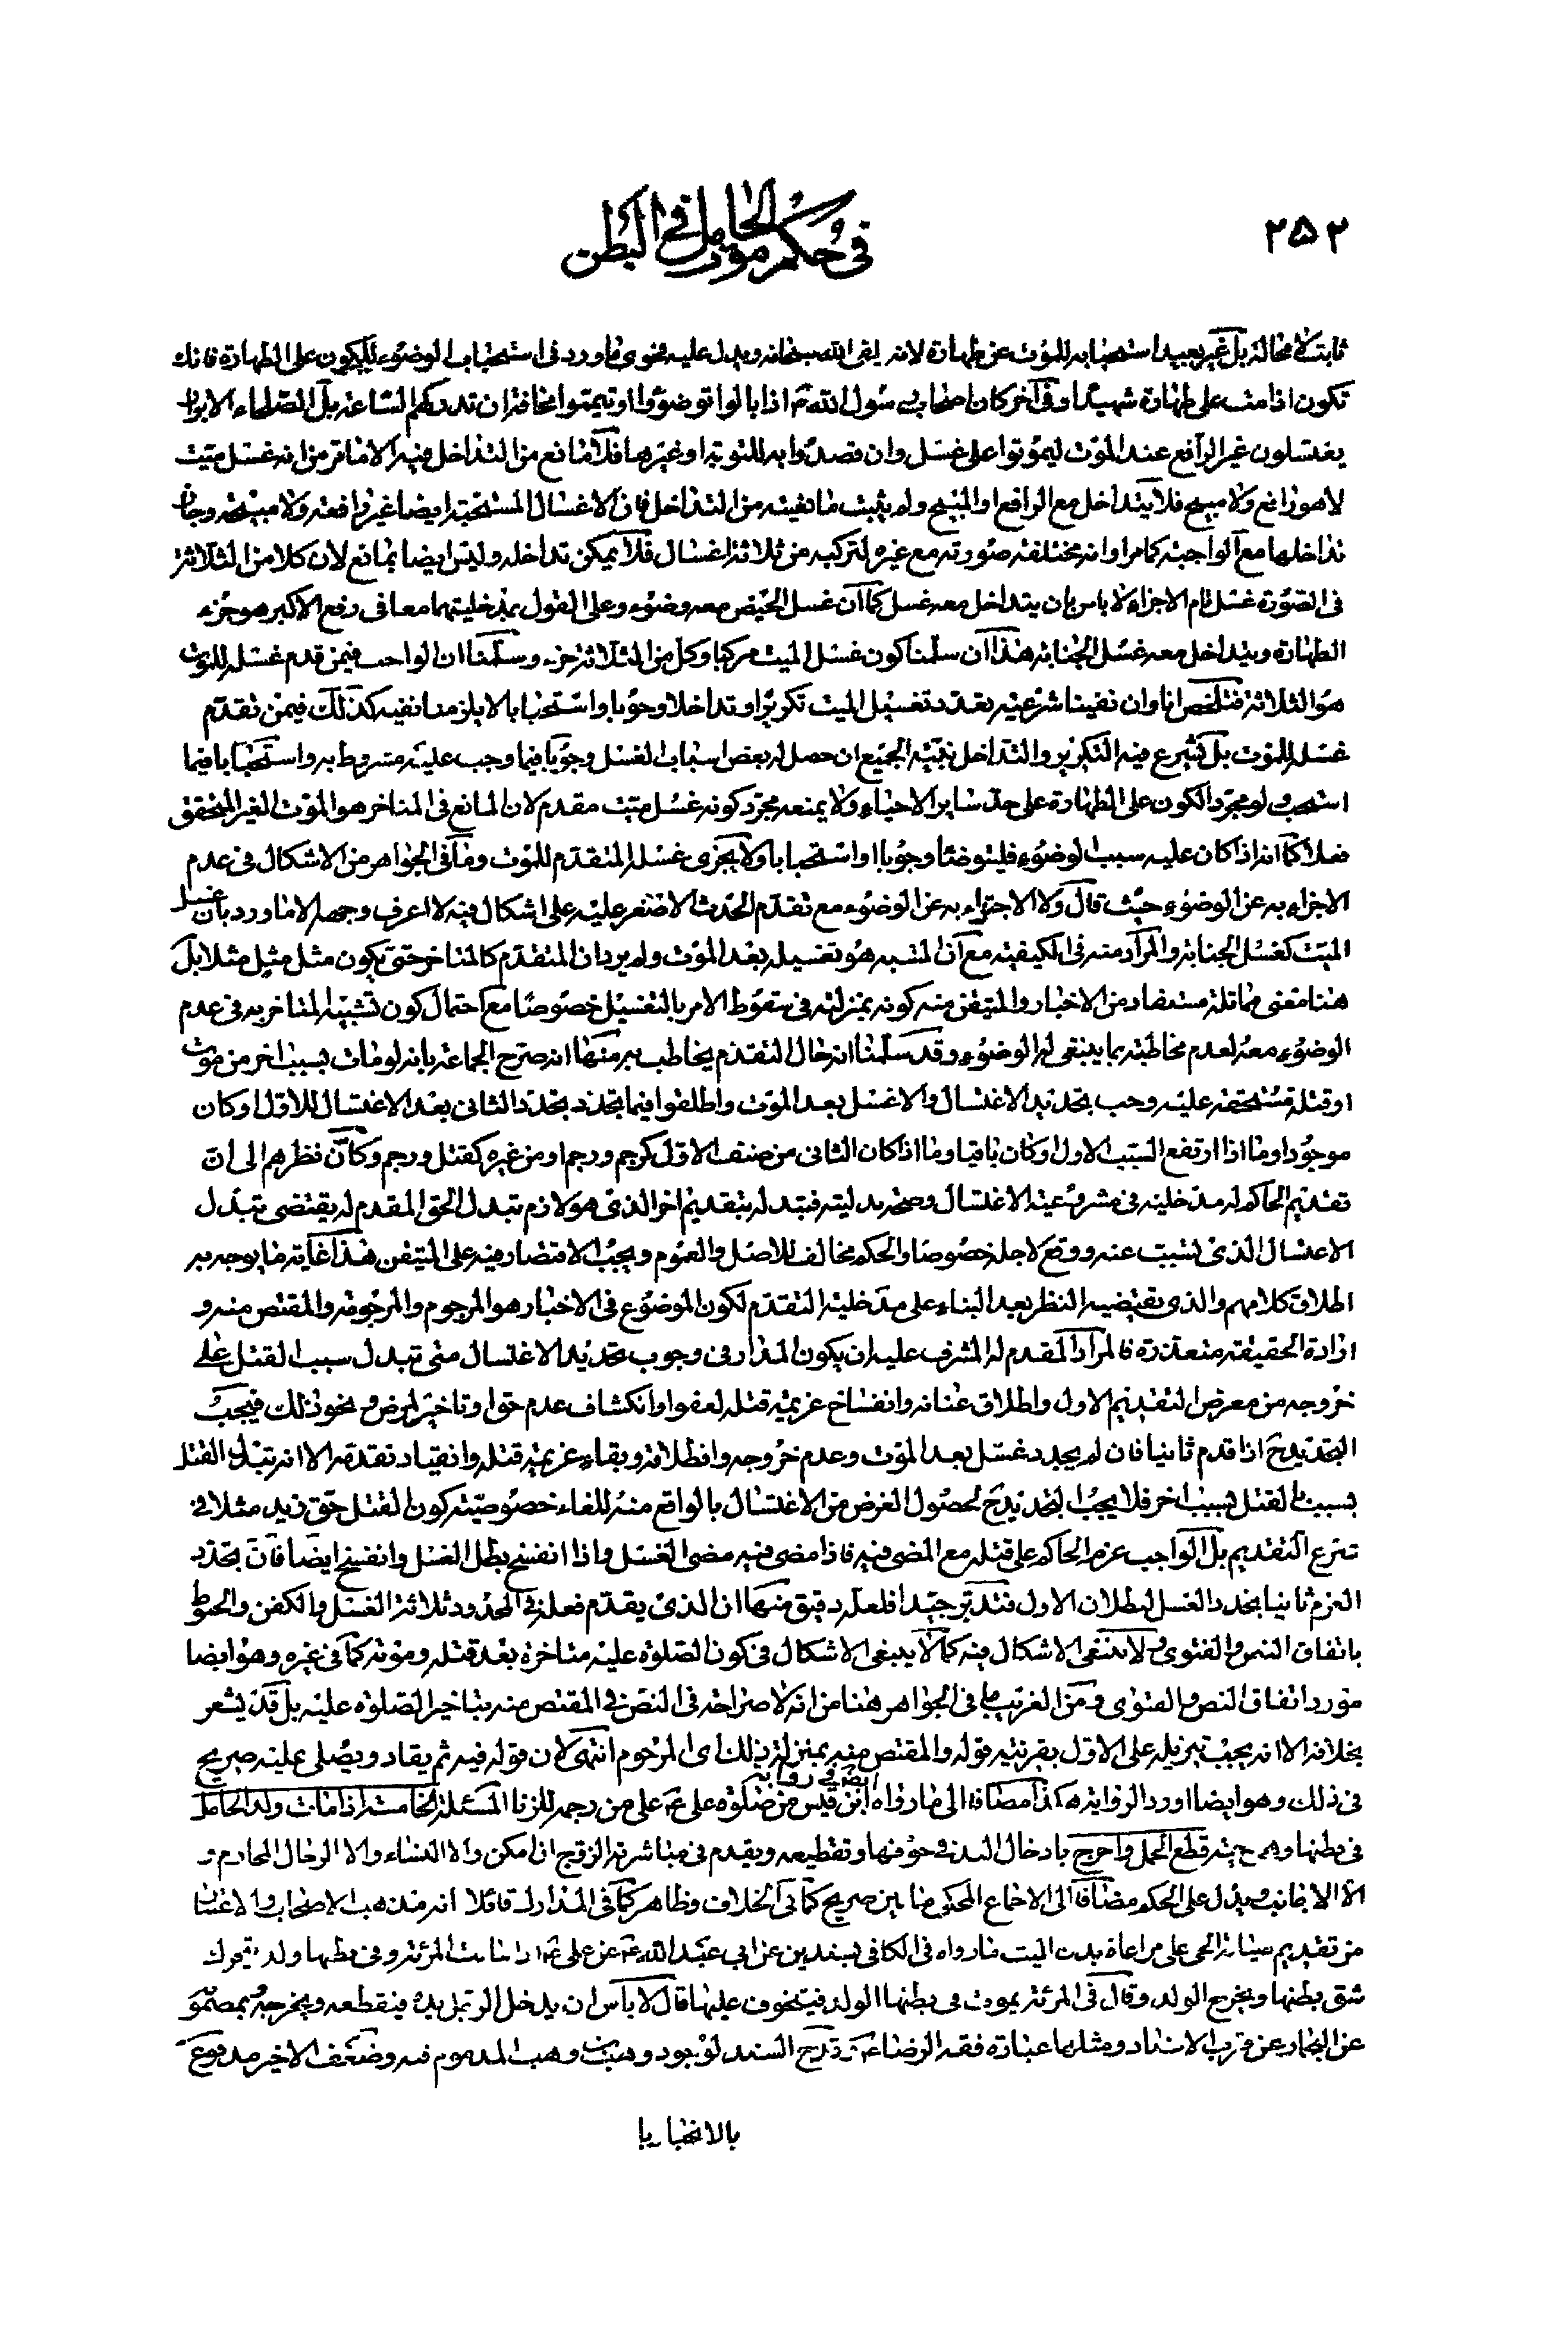 ٢٥٢
في حكم موت الحامل في البطن
ثابت لا محالة بل غير بعيد استحبابه للموت عن طهارة لانه لقى الله سبحانه ويدل عليه فحوى ما ورد في استحباب الوضوء للكون على الطهارة فانك
تكون اذا مت على طهارة شهيدا وفي آخر كان اصحاب رسول الله ص اذا بالوا توضؤا او تيمموا مخافة ان تدركهم الساعة بل الصلحاء الابرار
يغتسلون غير الرافع عند الموت ليموتوا على غسل وان قصدوا به للتوبة او غيرها فلا مانع من التداخل فيه الا ما مر من انه غسل ميت
لا هو رافع ولا مبيح فلا يتداخل مع الرافع او المبيح ولم يثبت ما نفيته من التداخل فان الاغسال المستحبة ايضا غير رافعة ولا مبيحة وجاز
تداخلها مع الواجبة كما مر او انه مختلفة صورته مع غيره لتركبه من ثلاثة اغسال فلا يمكن تداخله وليس ايضا بمانع لان كلا من الثلاثة
في الصورة غسل تام الاجزاء لا باس بان يتداخل معه غسل كما ان غسل الحيض معه وضوء وعلى القول بمدخليتهما معا في رفع الاكبر هو جزء
الطهارة ويتداخل معه غسل الجنابة هذا ان سلمنا كون غسل الميت مركبا وكل من الثلاثة جزء وسلمنا ان الواجب فيمن قدم غسله للموت
هو الثلاثة فتلخص انا وان نفينا شرعية تعدد تغسيل الميت تكريرا وتداخلا وجوبا واستحبابا لا يلزمنا نفيه كذلك فيمن تقدم
غسله للموت بل يشرع فيه التكرير والتداخل بنية الجميع ان حصل له بعض اسباب الغسل وجوبا فيما وجب عليه مشروط به واستحبابا فيما
استحب ولو مجرد الكون على الطهارة على حد ساير الاحياء ولا يمنعه مجرد كونه غسل ميت مقدم لان المانع في المتاخر هو الموت الغير المتحقق
فعلا كما انه اذا كان عليه سبب الوضوء فليتوضا وجوبا او استحبابا ولا يجزى غسله المتقدم للموت وما في الجواهر من الاشكال في عدم
الاجزاء به عن الوضوء حيث قال ولا الاجتزاء به عن الوضوء مع تقدم الحدث الاصغر عليه على اشكال فيه لا اعرف وجهه الا ما ورد بان غسل
الميت كغسل الجنابة والمراد منه في الكيفية مع ان المشبه هو تغسيله بعد الموت ولم يرد ان المتقدم كالمتاخر حتى يكون مثل مثيل مثلا بل
هنا معنى مماثلة مستفاد من الاخبار والمتيقن منه كونه بمنزلته في سقوط الامر بالتغسيل خصوصا مع احتمال كون تشبيه المتاخر به في عدم
الوضوء معه لعدم مخاطبته بما يبتغى له الوضوء وقد سلمنا انه حال التقدم يخاطب به منها انه صرح الجماعة بانه لو مات بسبب اخر من موت
او قتله مستحقه عليه وجب تجديد الاغتسال والا غسل بعد الموت واطلقوا فيما تجدد تجدد الثاني بعد الاغتسال للاول او كان
موجودا وما اذا ارتفع السبب الاول او كان باقيا وما اذا كان الثاني من صنف الاول كرجم ورجم او من غيره كقتل ورجم وكان نظرهم الى ان
تقديم الحاكم له مدخلية في مشروعية الاغتسال وصحة بدليته فتبدله بتقديم اخر الذي هو لازم تبدل الحق المقدم له يقتضى تبدل
الاغتسال الذي تسبب عنه ووقع لاجله خصوصا والحكم مخالف للاصل والعموم ويجب الاقتصار فيه على المتيقن هذا غاية ما يوجه به
اطلاق كلامهم والذي يقتضيه النظر بعد البناء على مدخلية التقدم لكون الموضوع في الاخبار هو المرجوم والمرجومة والمقتص منه و
ارادة الحقيقة متعذرة فالمراد المقدم له المشرف عليه ان يكون المدار في وجوب تجديد الاغتسال متى تبدل سبب القتل على
خروجه من معرض التقديم الاول واطلاق عنانه وانفساخ عزيمة قتله لعفو او انكشاف عدم حق او تاخير لمرض ونحو ذلك فيجب
التجديد ح اذا قدم ثانيا فان لم يجدد غسل بعد الموت وعدم خروجه وانطلاقه وبقاء عزيمة قتله وانقياد تقدمه الا انه تبدل القتل
بسبب القتل بسبب اخر فلا يجب التجديد ح لحصول الغرض من الاغتسال بالواقع منه للغاء خصوصية كون القتل حق زيد مثلا في
شرع التقديم بل الواجب عزم الحاكم على قتله مع المضى فيه فاذا مضى فيه مضى الغسل واذا انفسخ بطل الغسل وانفسخ ايضا فان تجدد
العزم ثانيا تجدد الغسل لبطلان الاول فتدبر جيدا فلعله دقيق منها ان الذي يقدم فعله في الحدود ثلاثة الغسل والكفن والحنوط
باتفاق النص والفتوى ولا ينبغى الاشكال فيه كما لا ينبغى الاشكال في كون الصلوة عليه متاخرة بعد قتله وموته كما في غيره وهو ايضا
مورد اتفاق النص والفتوى ومن الغريب ما في الجواهر هنا من انه لا صراحة في النص في المقتص منه بتاخير الصلوة عليه بل قد يشعر
بخلافه الا انه يجب تنزيله على الاول بقرينة قوله والمقتص منه بمنزلة ذلك اي المرجوم انتهى لان قوله فيه ثم يقاد ويصلى عليه صريح
في ذلك وهو ايضا اورد الرواية هكذا مضافا الى ما رواه ايضا في رواية ابن قيس من صلوة على ع على من رجم للزنا المسئلة الخامسة اذا مات ولد الحامل
في بطنها وهي حية قطع الحمل واخرج بادخال اليد في جوفها وتقطيعه ويقدم في مباشرته الزوج ان امكن والا النساء والا الرجال المحارم و
الا الاجانب ويدل على الحكم مضافا الى الاجماع المحكى ما بين صريح كما في الخلاف وظاهر كما في المدارك قائلا انه مذهب الاصحاب والاعتبار
من تقديم صيانة الحى على مراعاة بدن الميت ما رواه في الكافي بسندين عن ابي عبد الله ع عن على ع اذا ماتت المرئة وفي بطنها ولد يتحرك
شق بطنها ويخرج الولد وقال في المرئة يموت في بطنها الولد فيتخوف عليها قال لا باس ان يدخل الرجل يده فيقطعه ويخرجه وبمضمونه
عن البحار عن قرب الاسناد ومثلها عبارة فقه الرضا ع وقدح السند لوجود وهب بن وهب المذموم فيه وضعف الاخير مدفوع
بالانجبار با